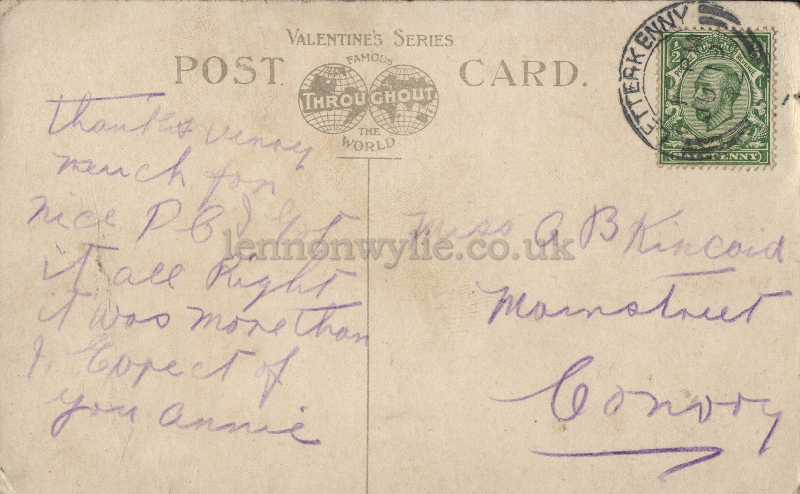 VALENTINE'S SERIES
POST CARD.
FAMOUS
THROUGHOUT
THE
WORLD
LETTERKENNY
HALFPENNY
thanks verry
much for
nice P C I got
it all Right
it was more than
I Expect of
you annie
Miss A B Kincaid
Mainstreet
Convoy
lennonwylie.co.uk